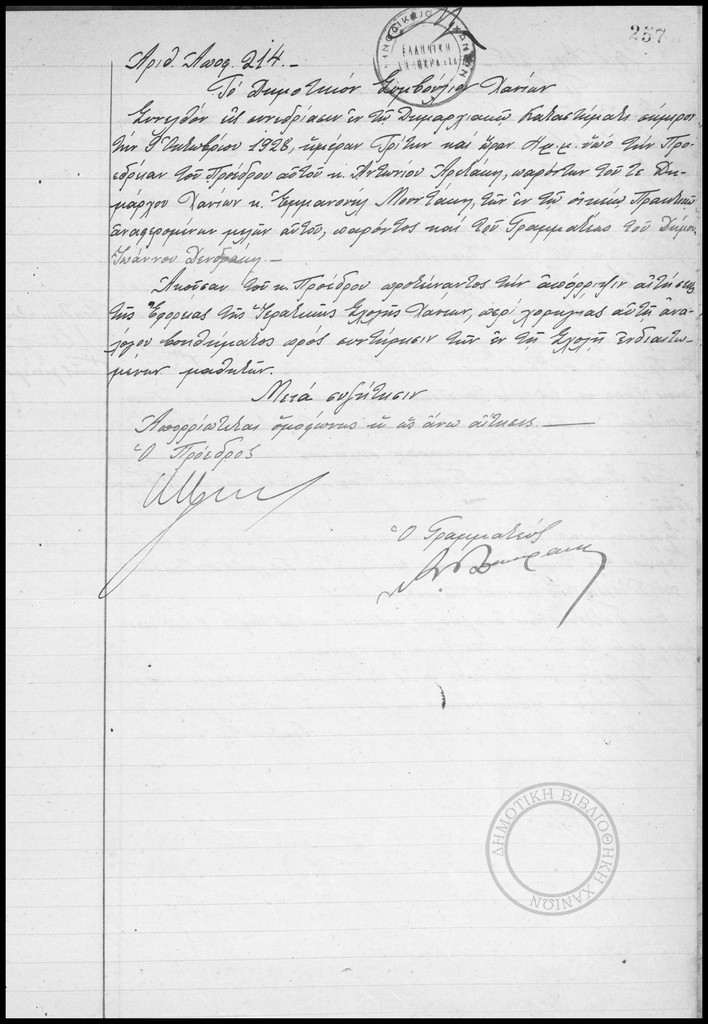 257
ΠΡΩΤΟΔΙΚΕΙΟ ΧΑΝΙΩΝ
ΕΛΛΗΝΙΚΗ
ΔΗΜΟΚΡΑΤΙΑ
Αριθ. Αποφ. 214. —
Τό Δημοτικόν Συμβούλιον Χανίων
Συνελθόν εἰς συνεδρίασιν ἐν τῷ Δημαρχιακῷ Καταστήματι σήμερον
τήν 9 Ὀκτωβρίου 1928, ἡμέραν Τρίτην καί ὥραν π.μ. ὑπό τήν Προ-
εδρίαν τοῦ Προέδρου αὐτοῦ κ. Ἀντωνίου παρόντων τοῦ τε Δη-
μάρχου Χανίων κ. Ἐμμανουήλ Μουντάκη, τῶν ἐν τῷ οἰκείῳ Πρακτικῷ
ἀναφερομένων μελῶν αὐτοῦ, παρόντος καί τοῦ Γραμματέως τοῦ Δήμου
Ἰωάννου Δενδράκη. —
Ἀκοῦσαν τοῦ κ. Προέδρου προτείναντος τήν ἀπόρριψιν αἰτήσεως
τῆς Ἐφορείας τῆς Ἱερατικῆς Σχολῆς Χανίων, περί χορηγίας αὐτῇ ἀνα-
λόγου βοηθήματος πρός συντήρησιν τῶν ἐν τῇ Σχολῇ ἐνδιαιτω-
μένων μαθητῶν.
Μετά συζήτησιν
Ἀπορρίπτεται ὁμοφώνως ἡ ὡς ἄνω αἴτησις. —
Ὁ Πρόεδρος
Ὁ Γραμματεύς
ΔΗΜΟΤΙΚΗ ΒΙΒΛΙΟΘΗΚΗ ΧΑΝΙΩΝ